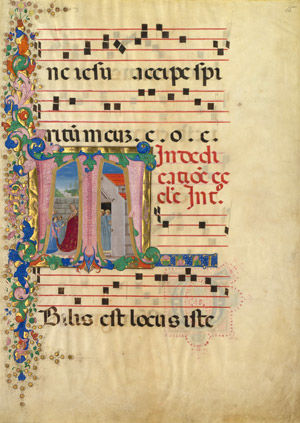 ne iesu accipe spi
ritum meuz. e. o. e.
In dedi
catiõe ec
cl'e Int̃o.
T
Bilis est locus iste